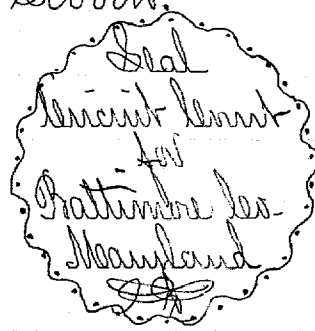 Seal
Circuit Court
for
Baltimore Co.
Maryland